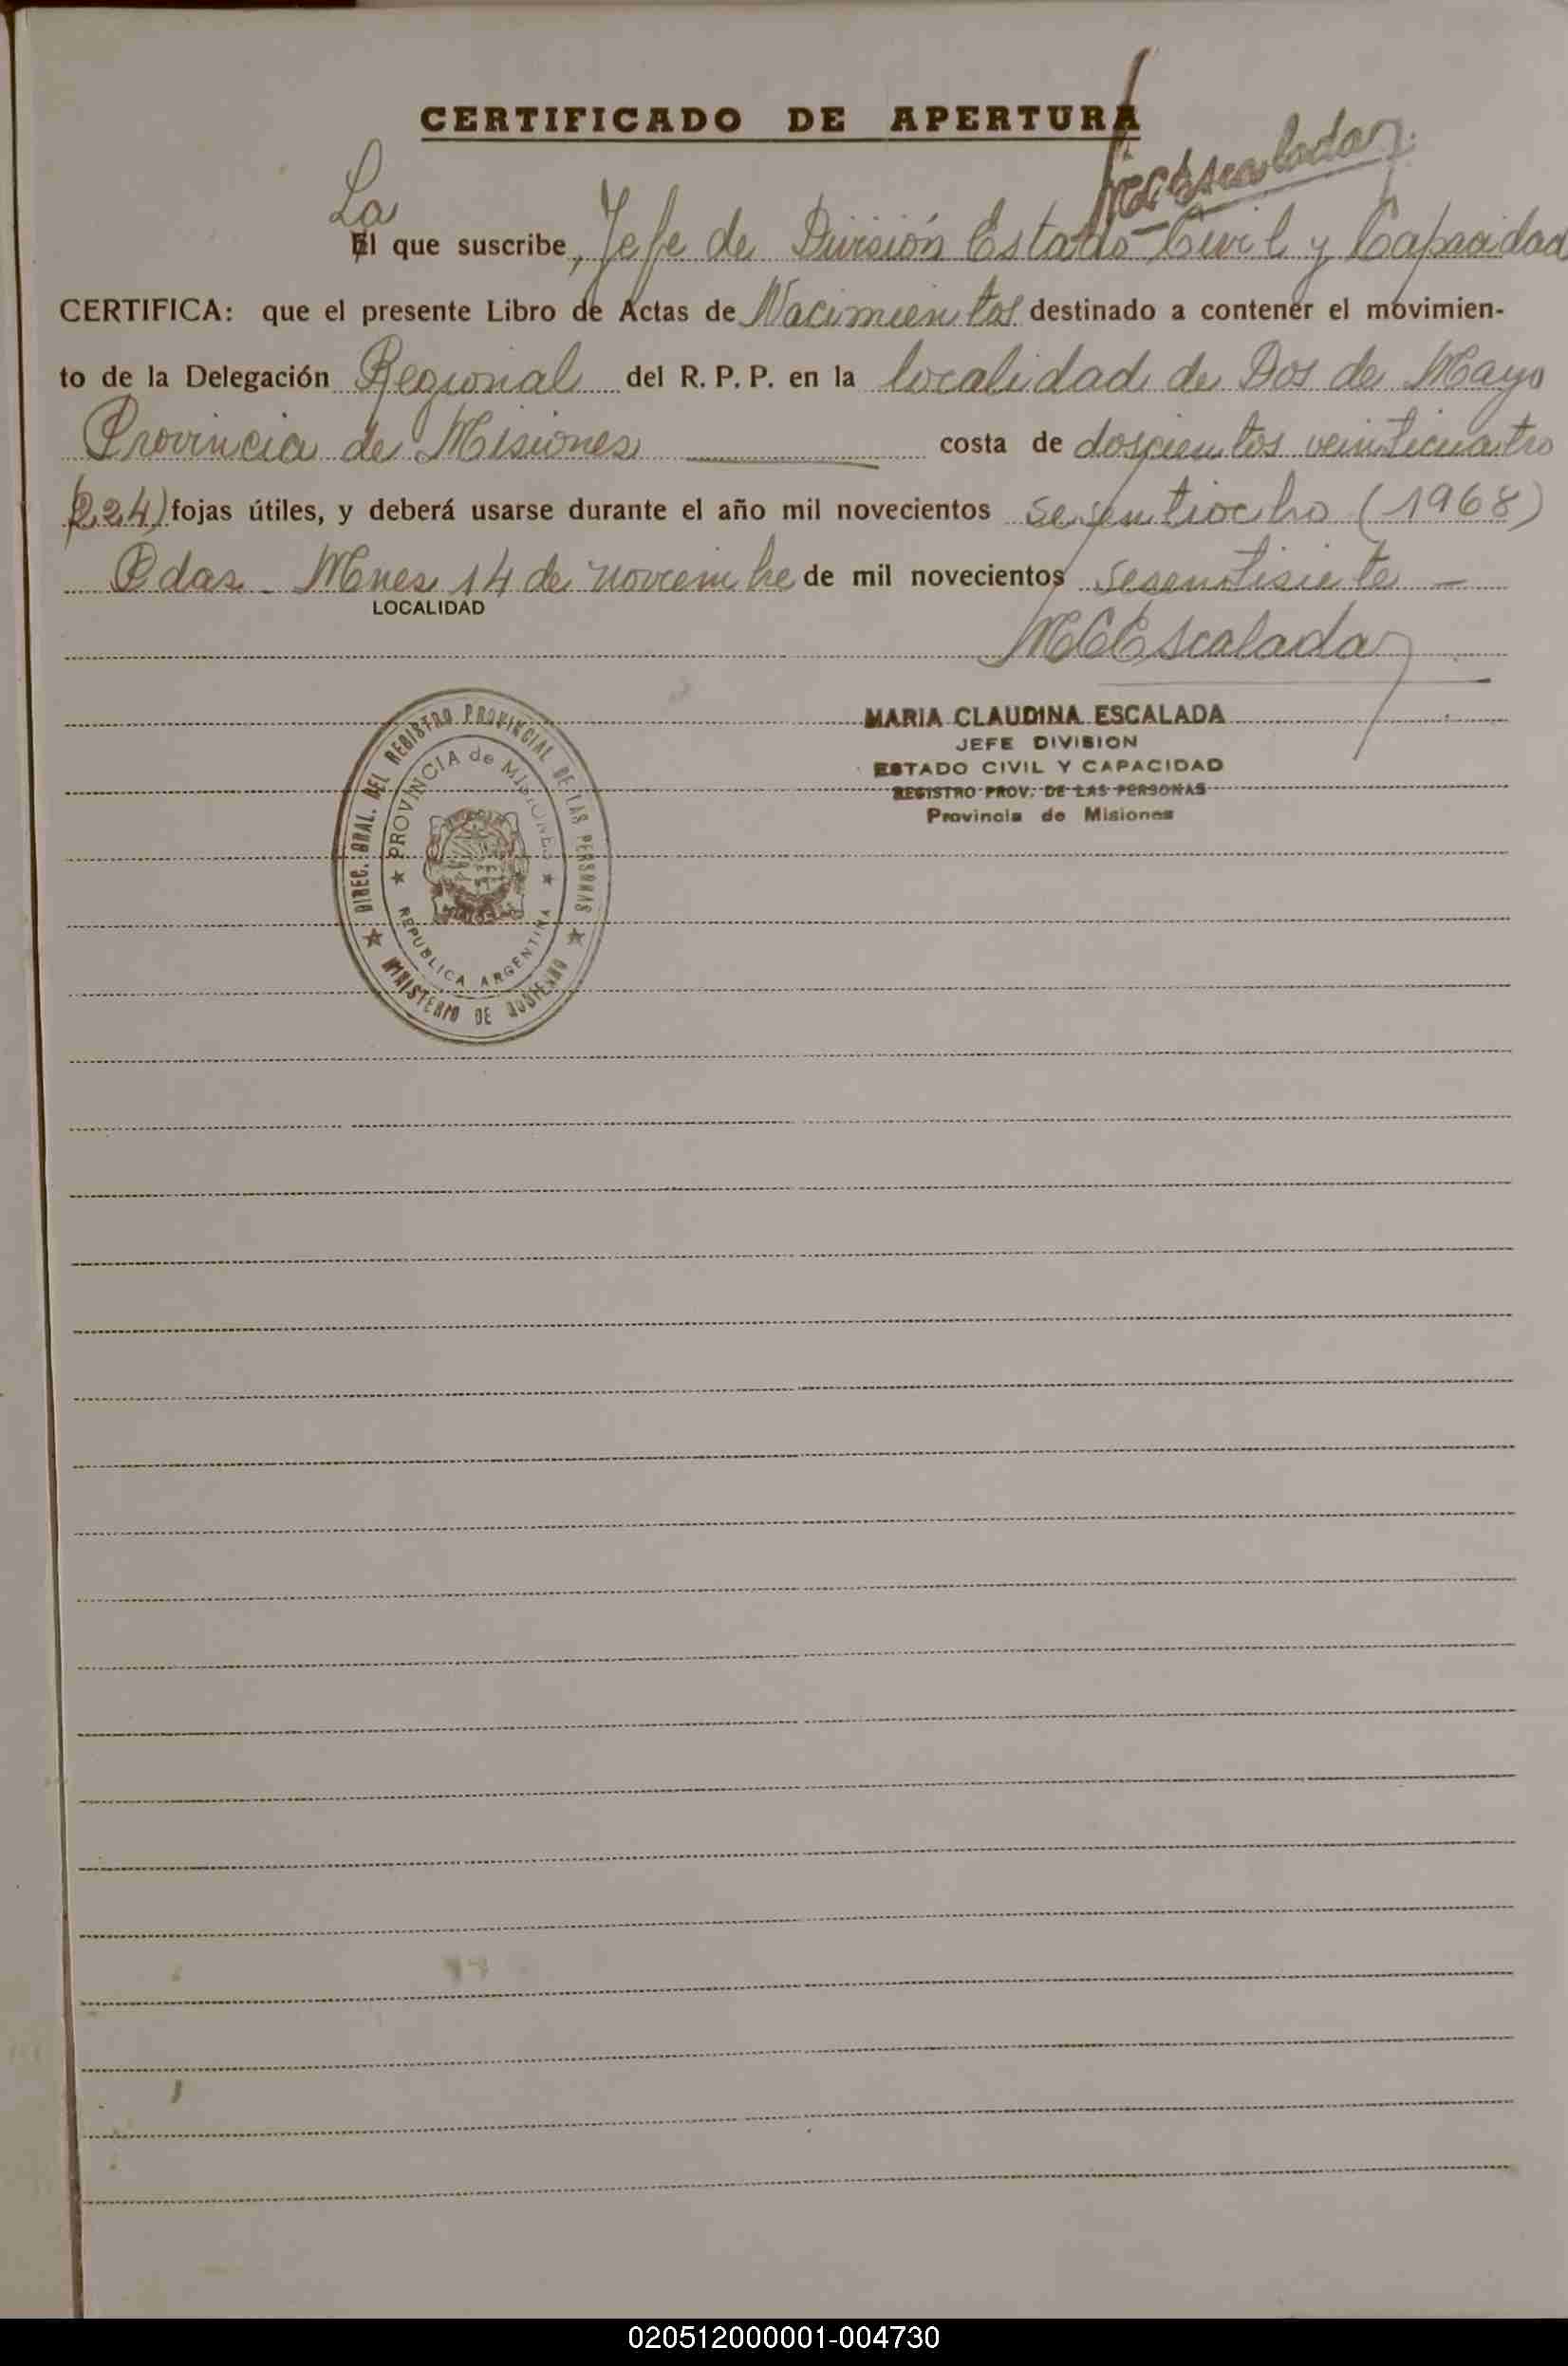 CERTIFICADO DE APERTURA
MCEscalada
La
El que suscribe, Jefe de División Estado Civil y Capacidad
CERTIFICA: que el presente Libro de Actas de Nacimientos destinado a contener el movimien-
to de la Delegación Regional del R. P. P. en la localidad de Dos de Mayo
Provincia de Misiones costa de doscientos veinticuatro
(224) fojas útiles, y deberá usarse durante el año mil novecientos sesentiocho (1968)
Pdas. Mnes 14 de noviembre de mil novecientos sesentisiete -
LOCALIDAD
MCEscalada
MARIA CLAUDINA ESCALADA
JEFE DIVISION
ESTADO CIVIL Y CAPACIDAD
REGISTRO PROV. DE LAS PERSONAS
Provincia de Misiones
DIREC. GRAL. DEL REGISTRO PROVINCIAL DE LAS PERSONAS
PROVINCIA de MISIONES
REPUBLICA ARGENTINA
MINISTERIO DE GOBIERNO
020512000001-004730